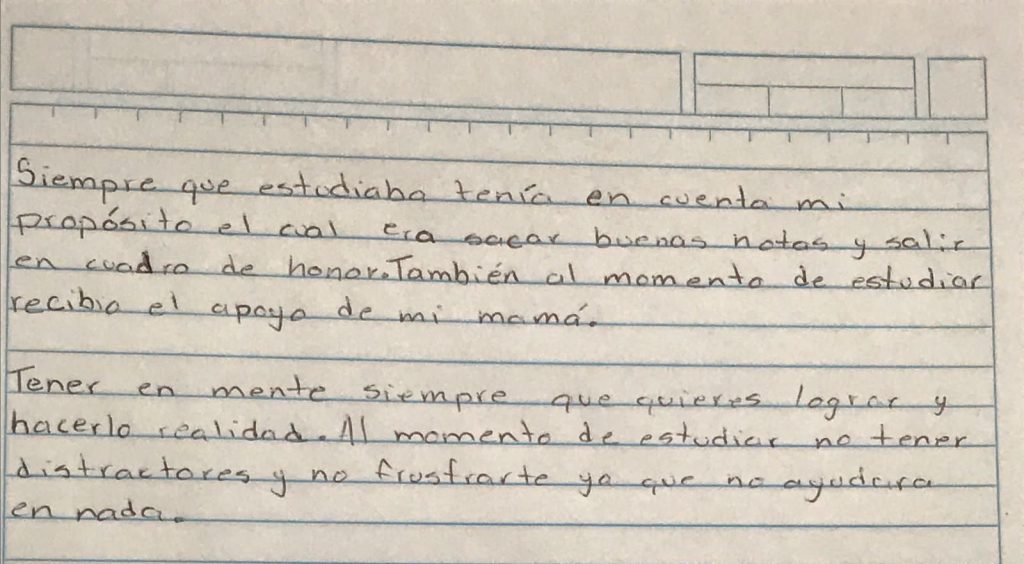 Siempre que estudiaba tenía en cuenta mi
propósito el cual era sacar buenas notas y salir
en cuadro de honor. También al momento de estudiar
recibia el apoyo de mi mamá.
Tener en mente siempre que quieres lograr y
hacerlo realidad. Al momento de estudiar no tener
distractores y no frustrarte ya que no ayudara
en nada.